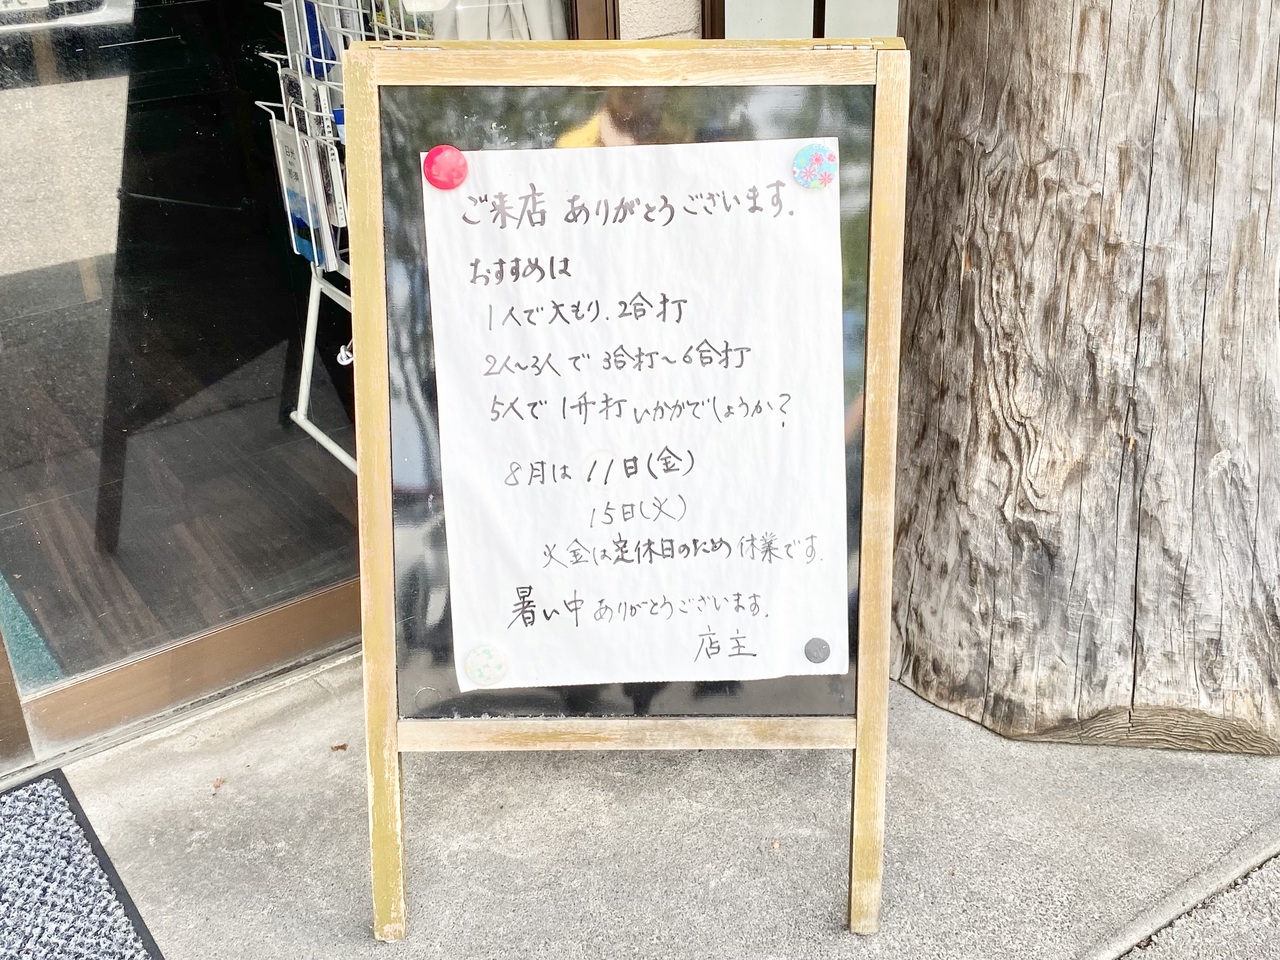 ご来店 ありがとうございます.
おすすめは
1人で大もり. 2合打
2人~3人で 3合打~6合打
5人で 1升打 いかがでしょうか?
8月は 11日(金)
15日(火)
火金は定休日のため休業です.
暑い中ありがとうございます.
店主